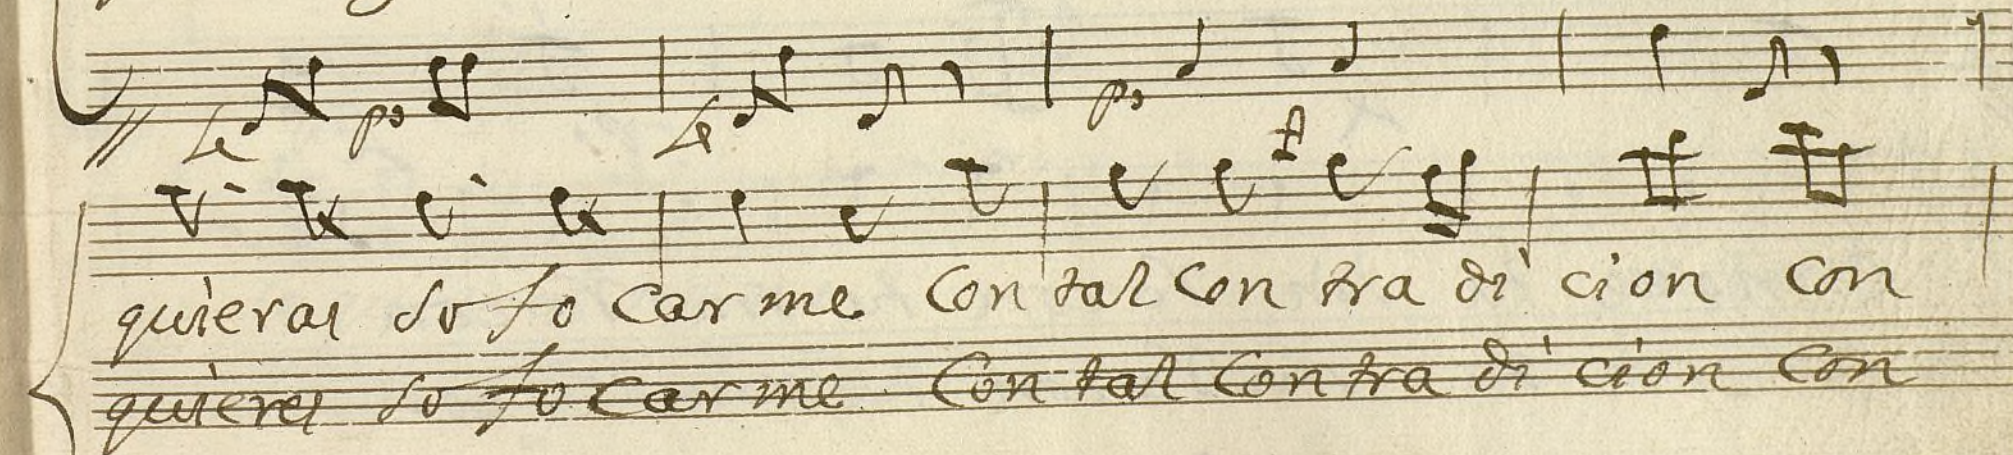 p.o
p.o
quieras so fo car me Con tal Con tra di cion con
quieres so fo car me Con tal Con tra di cion Con